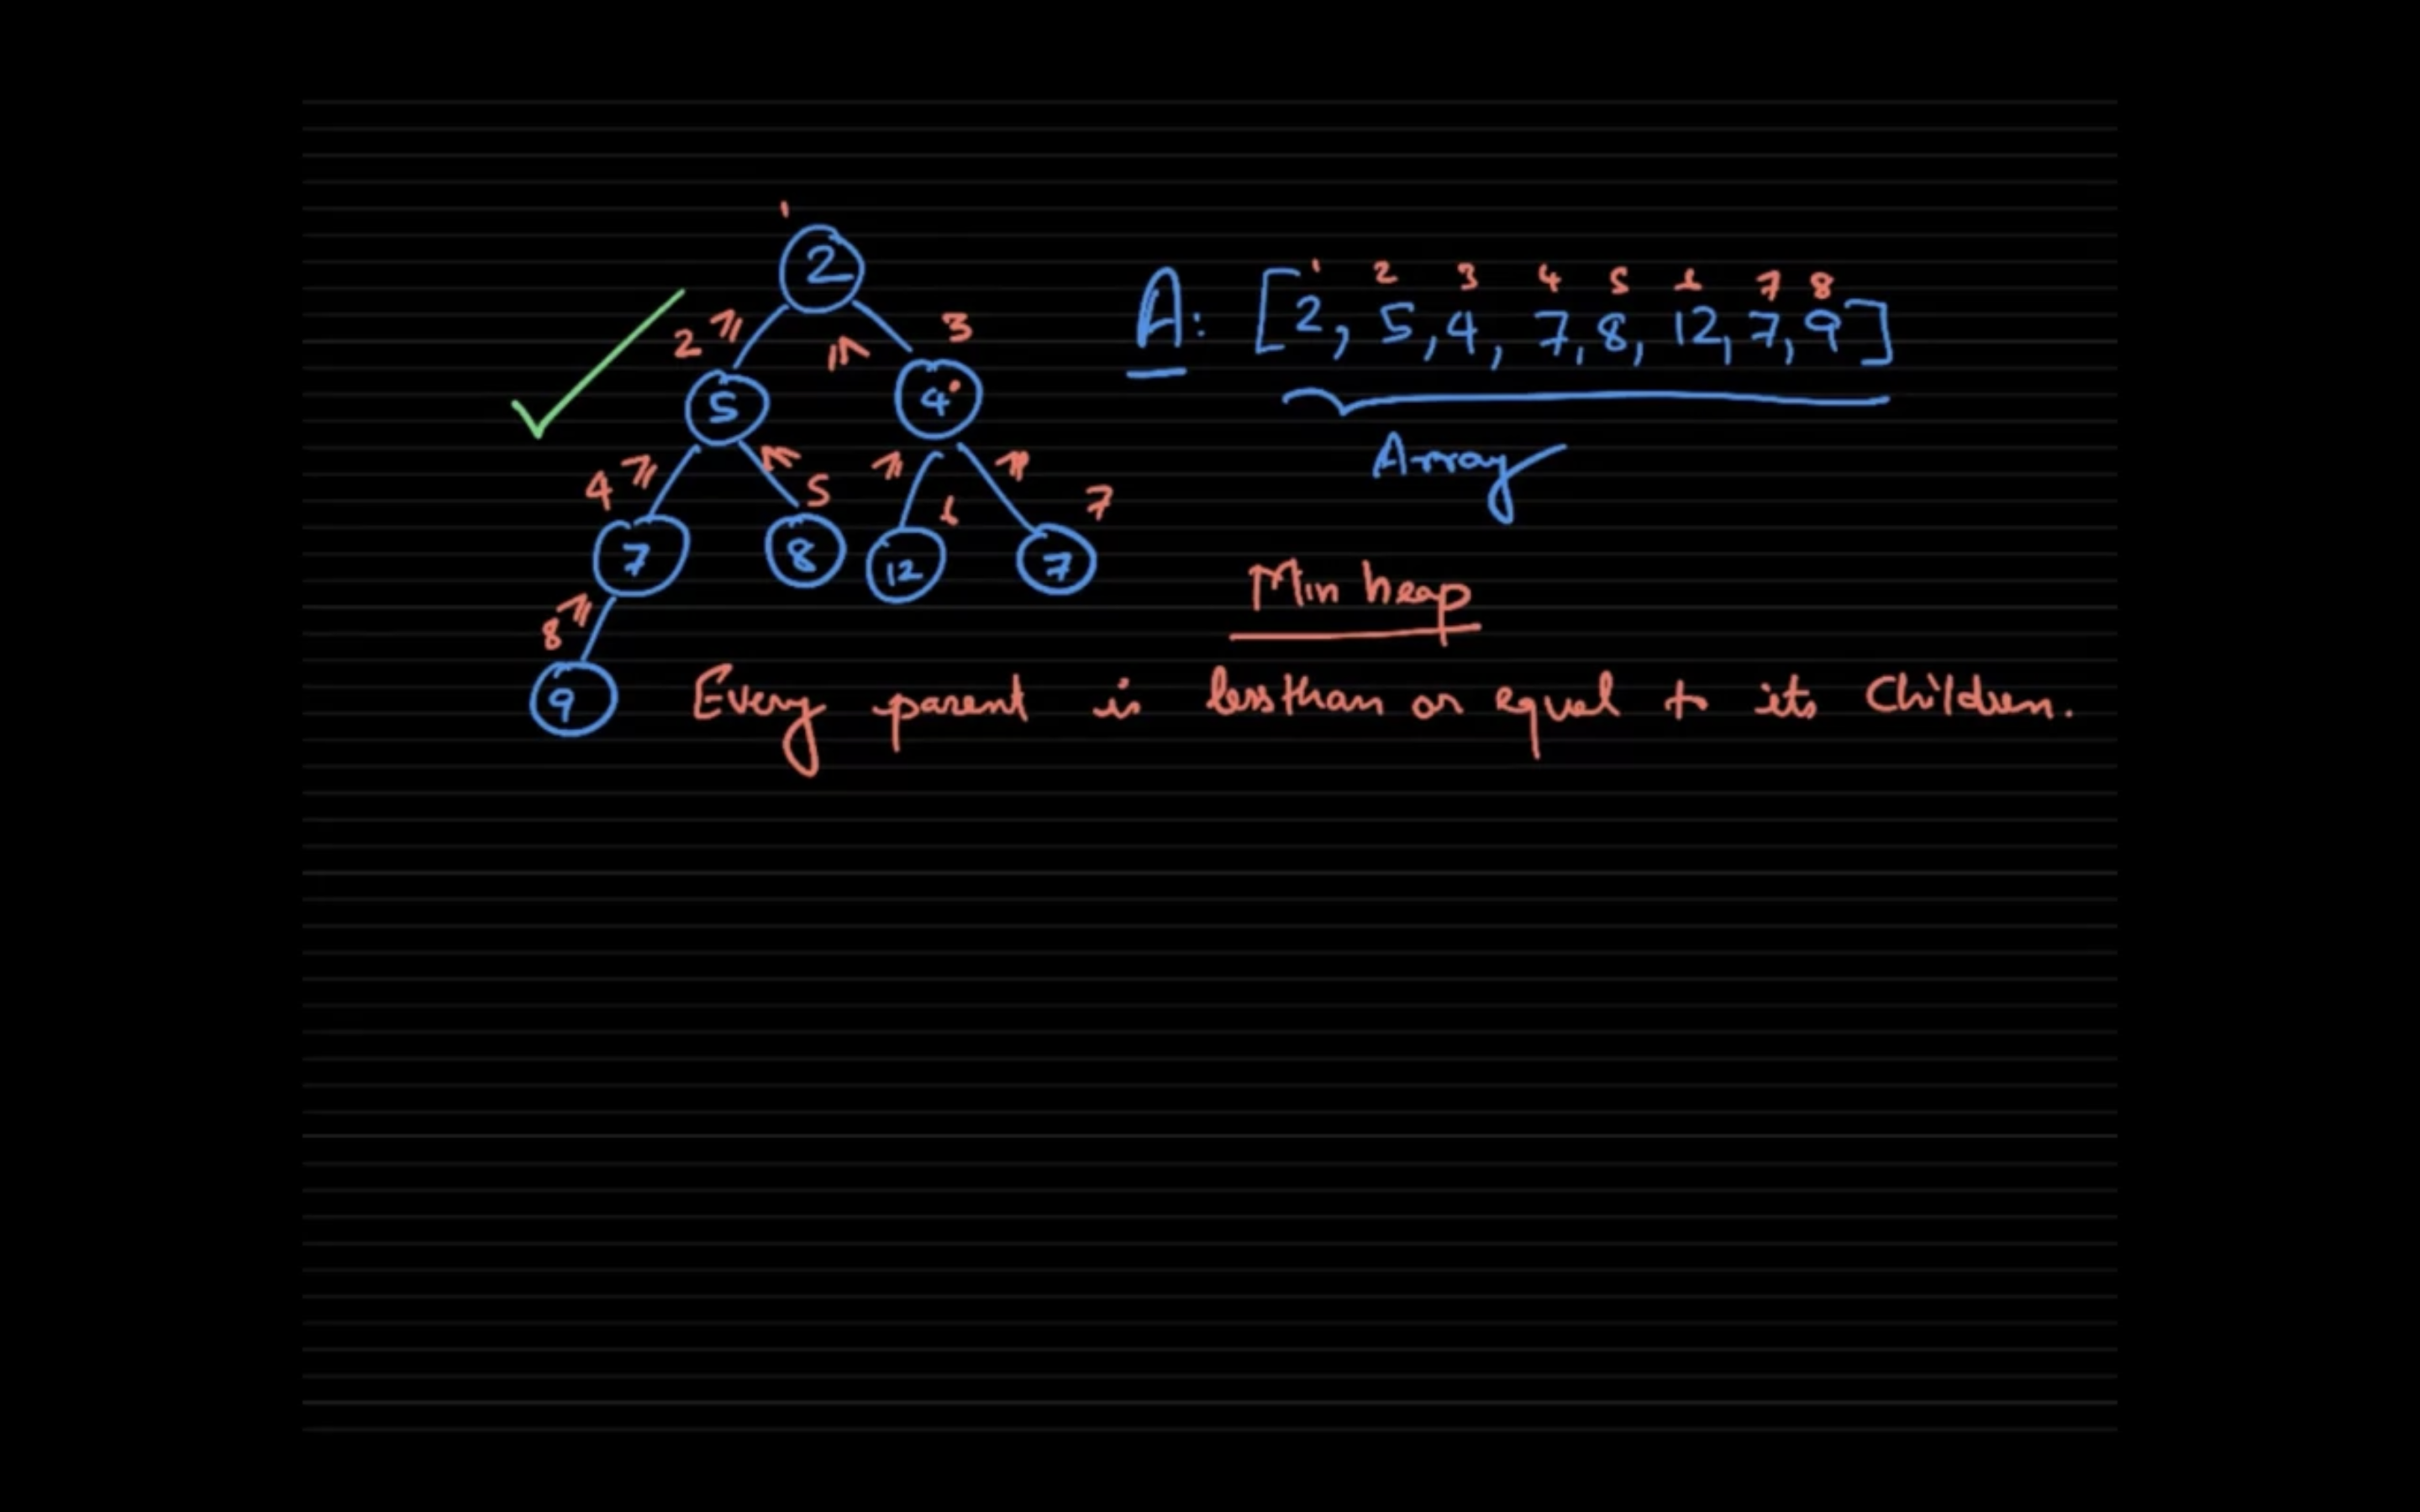 1
2
2 3
5 4
4 5 6 7
7 8 12 7
8
9
1 2 3 4 5 6 7 8
A: [2, 5, 4, 7, 8, 12, 7, 9]
Array
Min heap
Every parent is less than or equal to its Children.